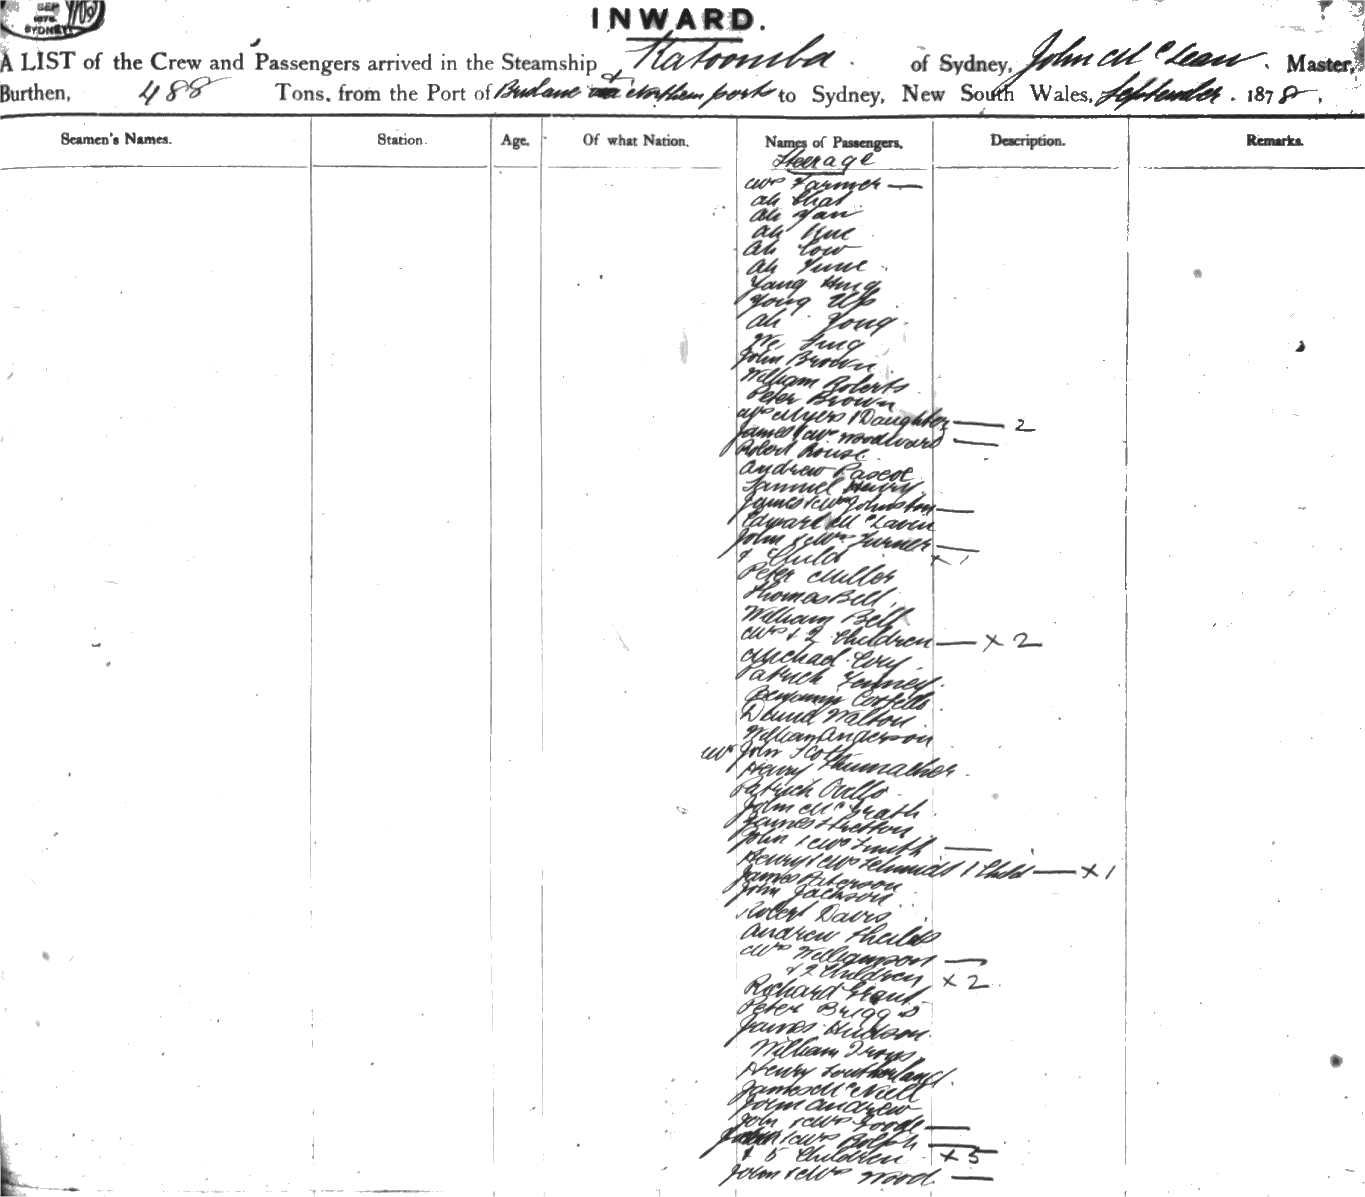 SEP
1878
SYDNEY
INWARD.
A LIST of the Crew and Passengers arrived in the Steamship Katoomba of Sydney, John McLean. Master,
Burthen, 488 Tons, from the Port of Brisbane & Northern ports to Sydney, New South Wales, September. 1878.
Seamen's Names. Station. Age. Of what Nation. Names of Passengers. Description. Remarks.
Steerage
Mrs Farmer —
Ah Chat
Ah Yan
Ah Kue
Ah Cow
Ah
Yang Hing
Yong
Ah Yong
We Sing
John Brown
William Roberts
Peter Brown
Mrs Myers 1 Daughter — 2
James & Mrs Woodward —
Robert Rouse
Andrew Pascoe
Samuel Henry
James & Mrs Johnston —
Edward McLaven
John & Mrs Turner —
& Child × 1
Peter Miller
Thomas Bell
William Bell
Mrs & 2 Children — × 2
Michael
Patrick
Benjamin
David Walton
William Anderson
Mr John Scott
Henry Shumacher
Patrick
John McGrath
James Stretton
John & Mrs Smith —
Henry & Mrs Schmidt 1 Child — × 1
James Paterson
John Jackson
Robert Davis
Andrew Sheilds
Mrs Williamson —
& 2 Children × 2
Richard Grant
Peter Briggs
James Hudson
William Irons
Henry Southerland
James McNeill
John Andrew
John & Mrs Goode —
& Mrs Rolph —
& 5 Children × 5
John & Mrs Wood —